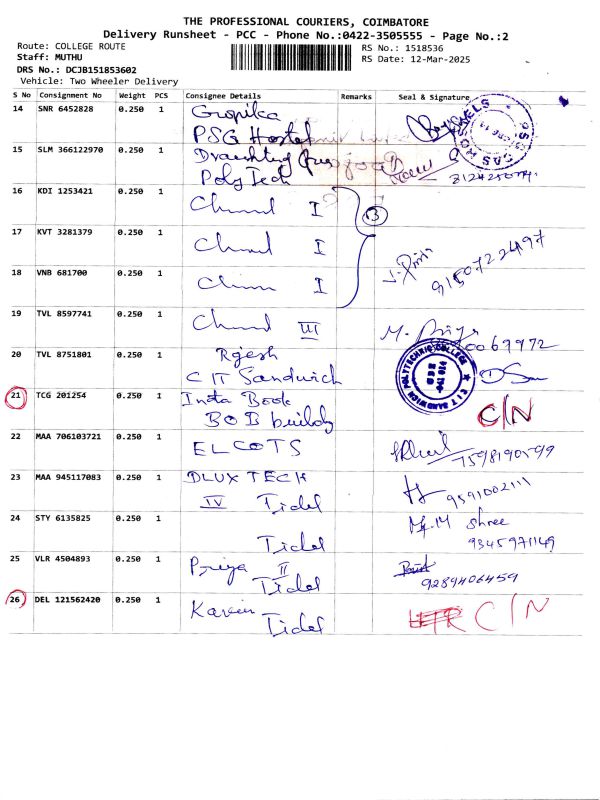 THE PROFESSIONAL COURIERS, COIMBATORE
Delivery Runsheet - PCC - Phone No.:0422-3505555 - Page No.:2
Route: COLLEGE ROUTE
RS No.: 1518536
Staff: MUTHU
RS Date: 12-Mar-2025
DRS No.: DCJB151853602
Vehicle: Two Wheeler Delivery
S No Consignment No Weight PCS Consignee Details Remarks Seal & Signature
14 SNR 6452828 0.250 1 Gropika
PSG Hostel
15 SLM 366122970 0.250 1
PolyTech
16 KDI 1253421 0.250 1 I
3
17 KVT 3281379 0.250 1 I
9150722497
18 VNB 681700 0.250 1 I
19 TVL 8597741 0.250 1 III M. Priya
20 TVL 8751801 0.250 1 Rajesh
CIT Sandwich
CIT SANDWICH POLYTECHNIC COLLEGE
21 TCG 201254 0.250 1 Insta Book C/N
BOB building
22 MAA 706103721 0.250 1 ELCOTS
7598190599
23 MAA 945117083 0.250 1 DLUX TECH
IV Tidel 9591002111
24 STY 6135825 0.250 1 shree
Tidel 9345971149
25 VLR 4504893 0.250 1 Priya II
Tidel 9289406459
26 DEL 121562420 0.250 1 C/N
Tidel